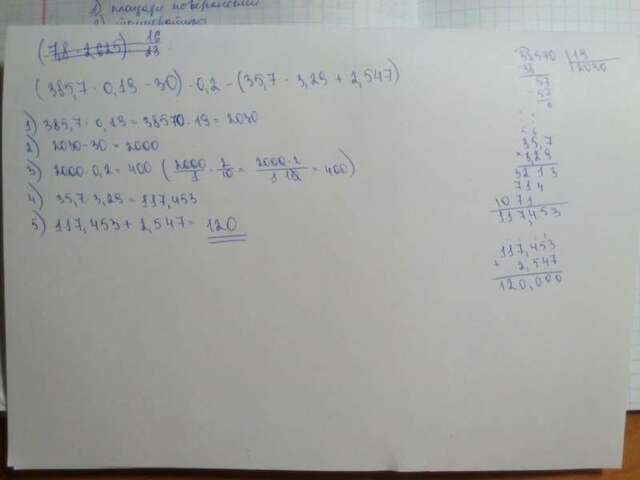 1) площади поверхностей
2)
(7,8 · 2,625) · 16/23
(385,7 : 0,19 - 30) · 0,2 - (35,7 · 3,29 + 2,547)
1) 385,7 : 0,19 = 38570 : 19 = 2030
2) 2030 - 30 = 2000
3) 2000 · 0,2 = 400 (2000/1 · 2/10 = 2000·2/1·10 = 400)
4) 35,7 · 3,29 = 117,453
5) 117,453 + 2,547 = 120
38570 | 19
38 | 2030
57
57
0
35,7
× 3,29
3213
714
1071
117,453
117,453
+ 2,547
120,000